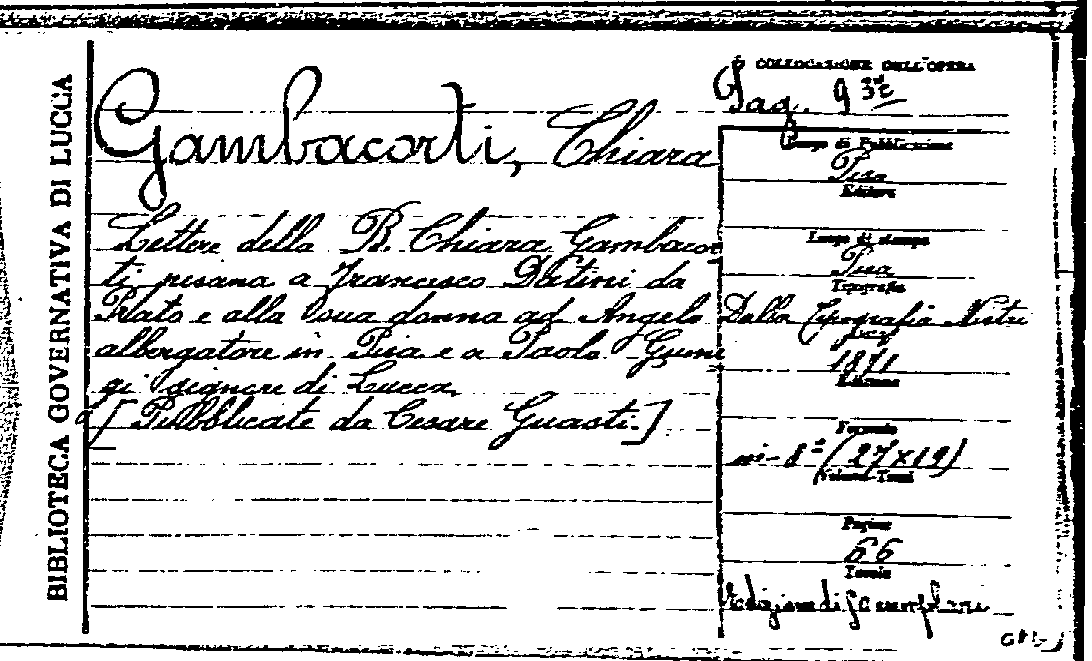 BIBLIOTECA GOVERNATIVA DI LUCCA
COLLOCAZIONE DELL'OPERA
Gambacorti, Chiara
Lettere della B. Chiara Gambacor
ti pisana a Francesco Datini da
Prato e alla sua donna ad Angelo
albergatore in Pisa e a Paolo Guini
gi signore di Lucca.
[Pubblicate da Cesare Guasti.]
Luogo di Pubblicazione
Pisa
Editore
Luogo di stampa
Pisa
Tipografia
Dalla Tipografia Nistri
1871
Edizione
Formato
in-8º (27x19)
Volumi-Tomi
Pagine
66
Tavole
Edizione di esemplari